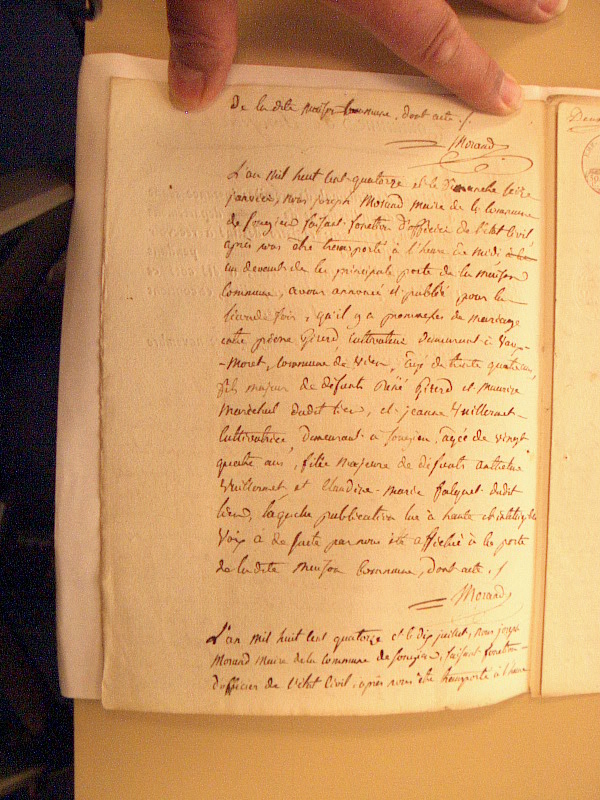 De la dite maison Commune, dont acte ./.
Morand
L'an mil huit cent quatorze et le Dimanche seize
janvier, nous joseph Morand maire de la Commune
de faisant fonction d'officier de l'état Civil
après nous être transporté, à l'heure de midi
au devant de la principale porte de la maison
Commune, avons annoncé et publié, pour la
seconde fois, qu'il y a promesses de mariage
entre pierre Girard Cultivateur demeurant à Vau-
-Moret, Commune de agé de trente quatre ans,
fils majeur de défunts René Girard et maurize
Maréchal dudit lieu, et jeanne Vuillermet
Cultivatrice demeurant a agée de vingt
quatre ans, fille majeure de défunts anthelme
Vuillermet et Claudine Marie falquet dudit
lieu, laquelle publication lue à haute et intelligible
Voix a de suite par nous été affichée à la porte
de la dite Maison Commune, dont acte ./
Morand
L'an mil huit cent quatorze et le dix juillet, nous joseph
Morand Maire de la Commune de faisant fonction
d'officier de l'état Civil, après nous être transporté à l'heure